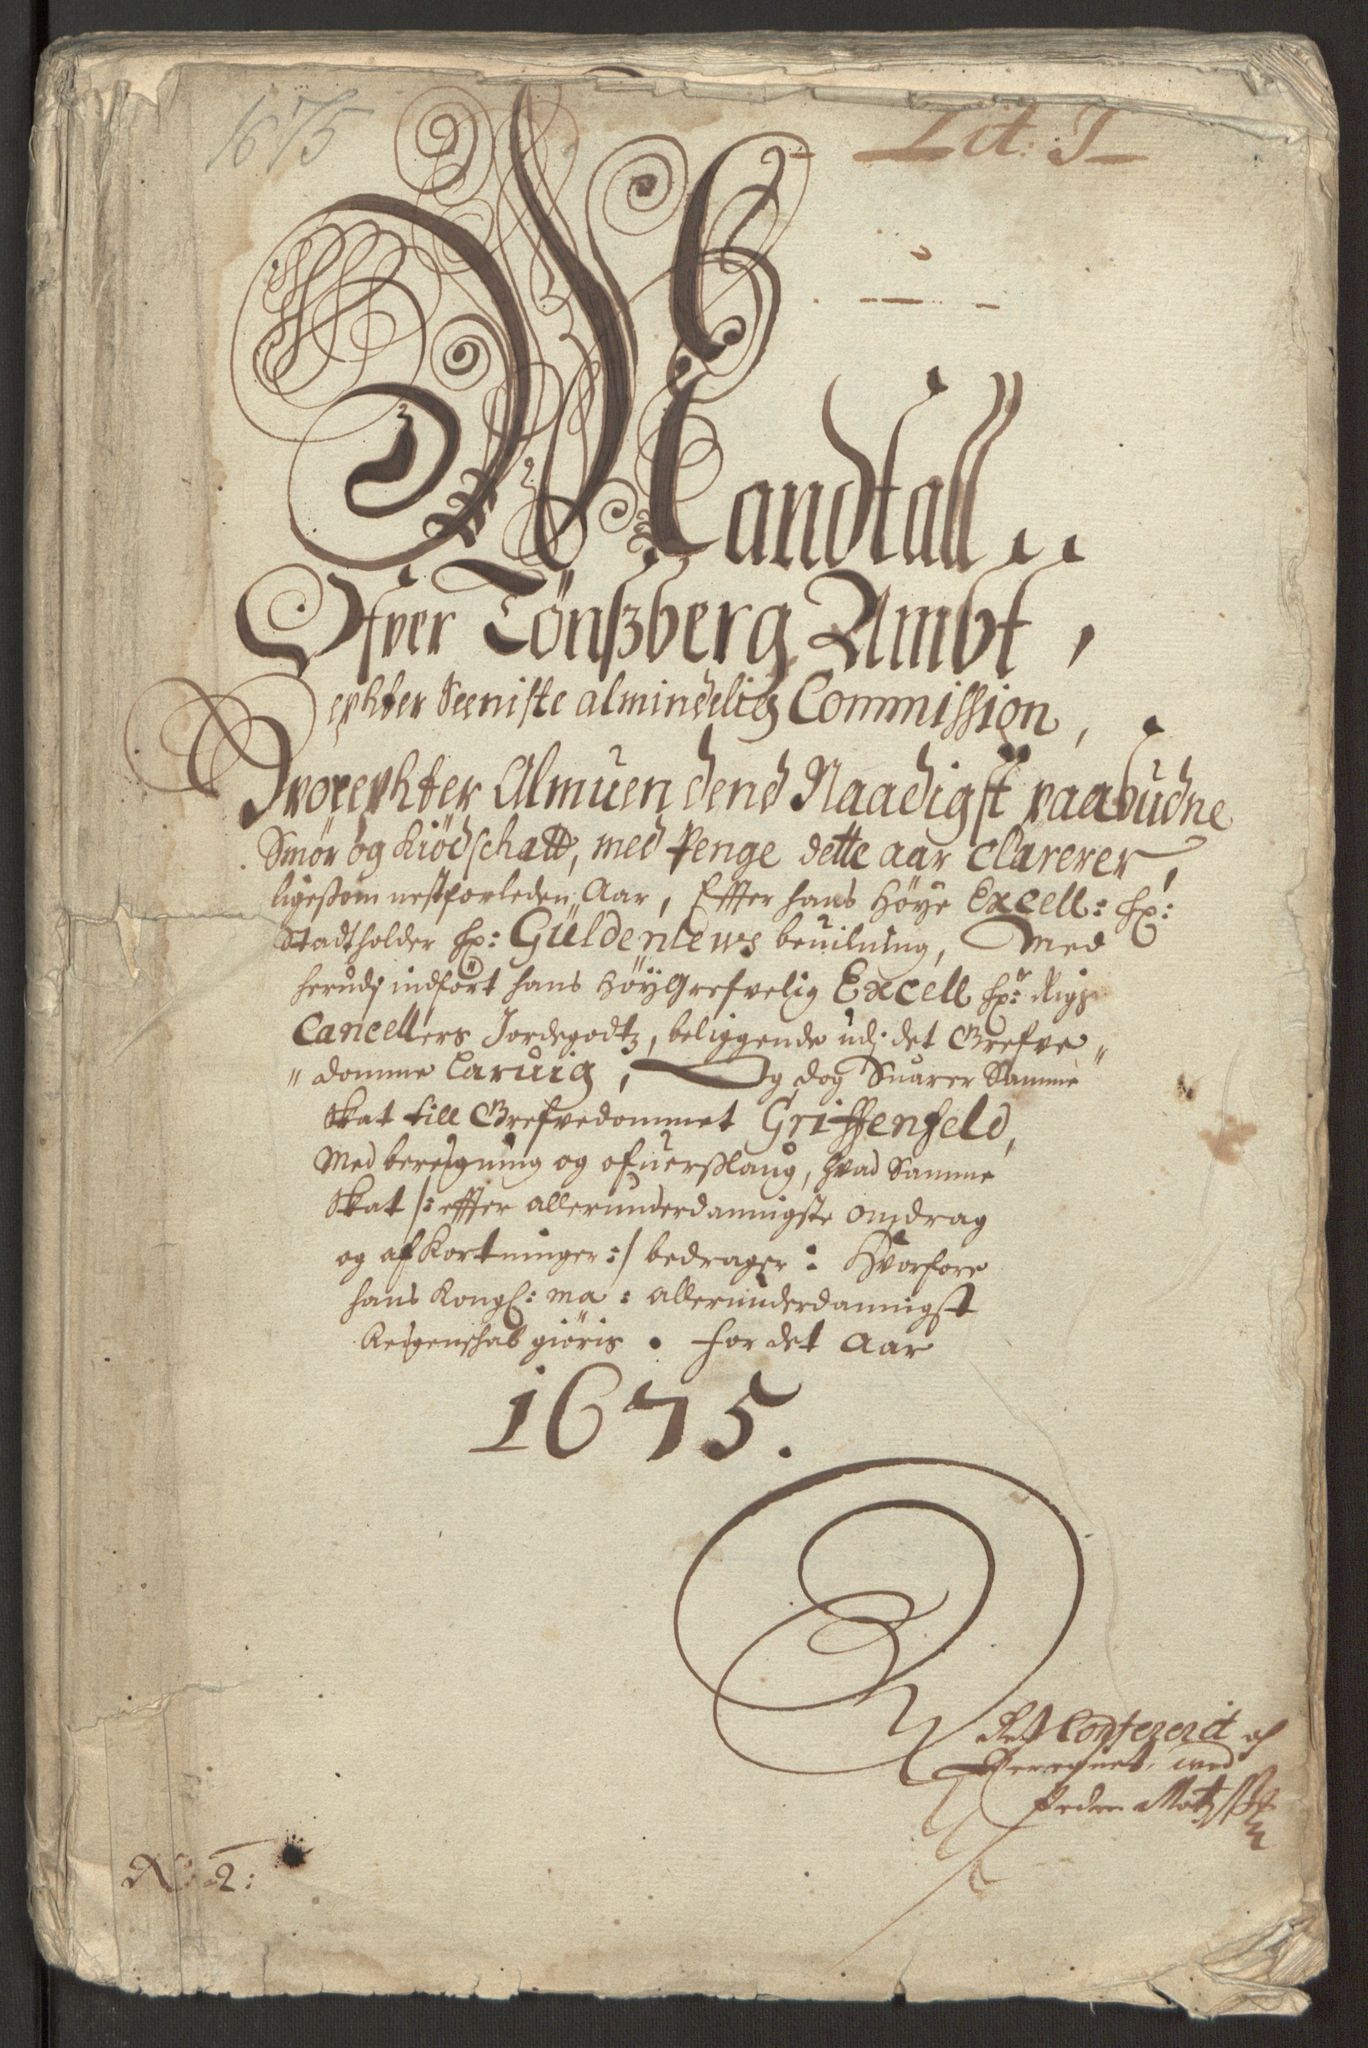 1675
Lit: J
Mandtall
Ofver Tönßberg Ambt,
Ephter Seeniste almindelig Commission,
Hvorephter Almuen dend Naadigst paabudne
Smör og Kiödschatt, med Penge dette aar Clarerer,
ligesom nestforleden Aar, Effter hans Höye Excell: Hr:
Stadtholder Hr: Güldenlews beuilning, Med
herudj indfört hans HöyGrefvelig Excell Hr: Rigs
Cancellers Jordegodtz, beliggende udj det Grefve
domme Laruig, Og dog Suarer Samme
Skat till Grefvedommet Griffenfeld,
Med beregning og ofuerslaug, hvad Samme
Skat /: effter allerunderdannigste omdrag
og afkortninger :/ bedrager : Hvorfore
hans Kongl: ma: allerunderdannigst
Regenschab giöris . for det Aar
1675.
Ret Confererit af
med
Peder
N: 2: